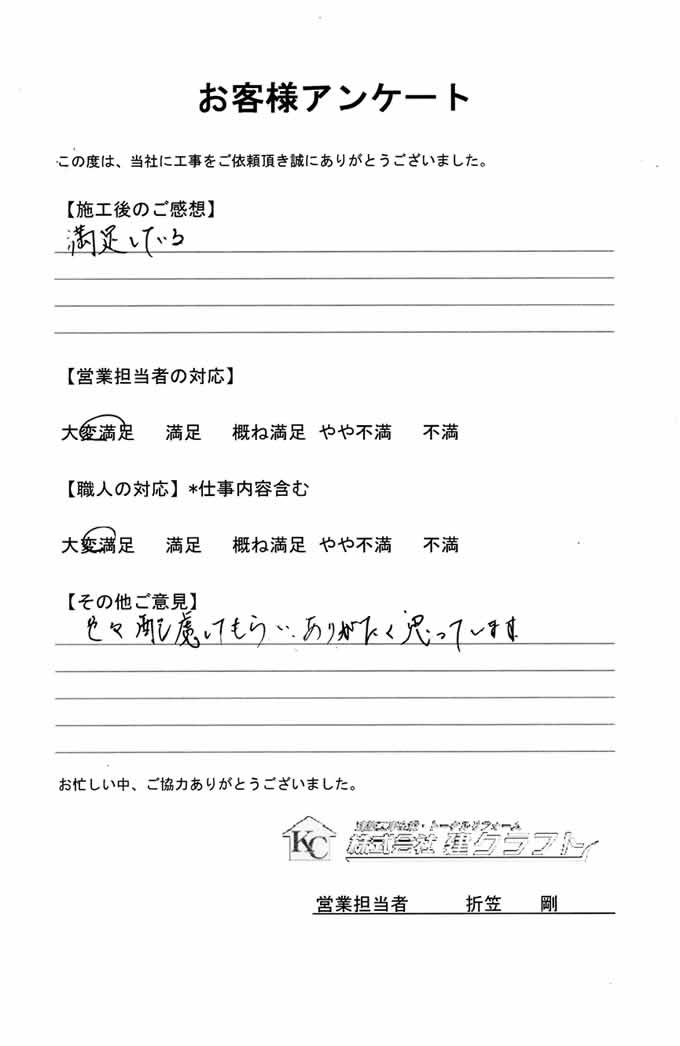 お客様アンケート
この度は、当社に工事をご依頼頂き誠にありがとうございました。
【施工後のご感想】
満足している
【営業担当者の対応】
大変満足 満足 概ね満足 やや不満 不満
【職人の対応】*仕事内容含む
大変満足 満足 概ね満足 やや不満 不満
【その他ご意見】
色々配慮してもらい、ありがたく思っています
お忙しい中、ご協力ありがとうございました。
トータルリフォーム
KC 株式会社 建クラフト
営業担当者 折笠 剛